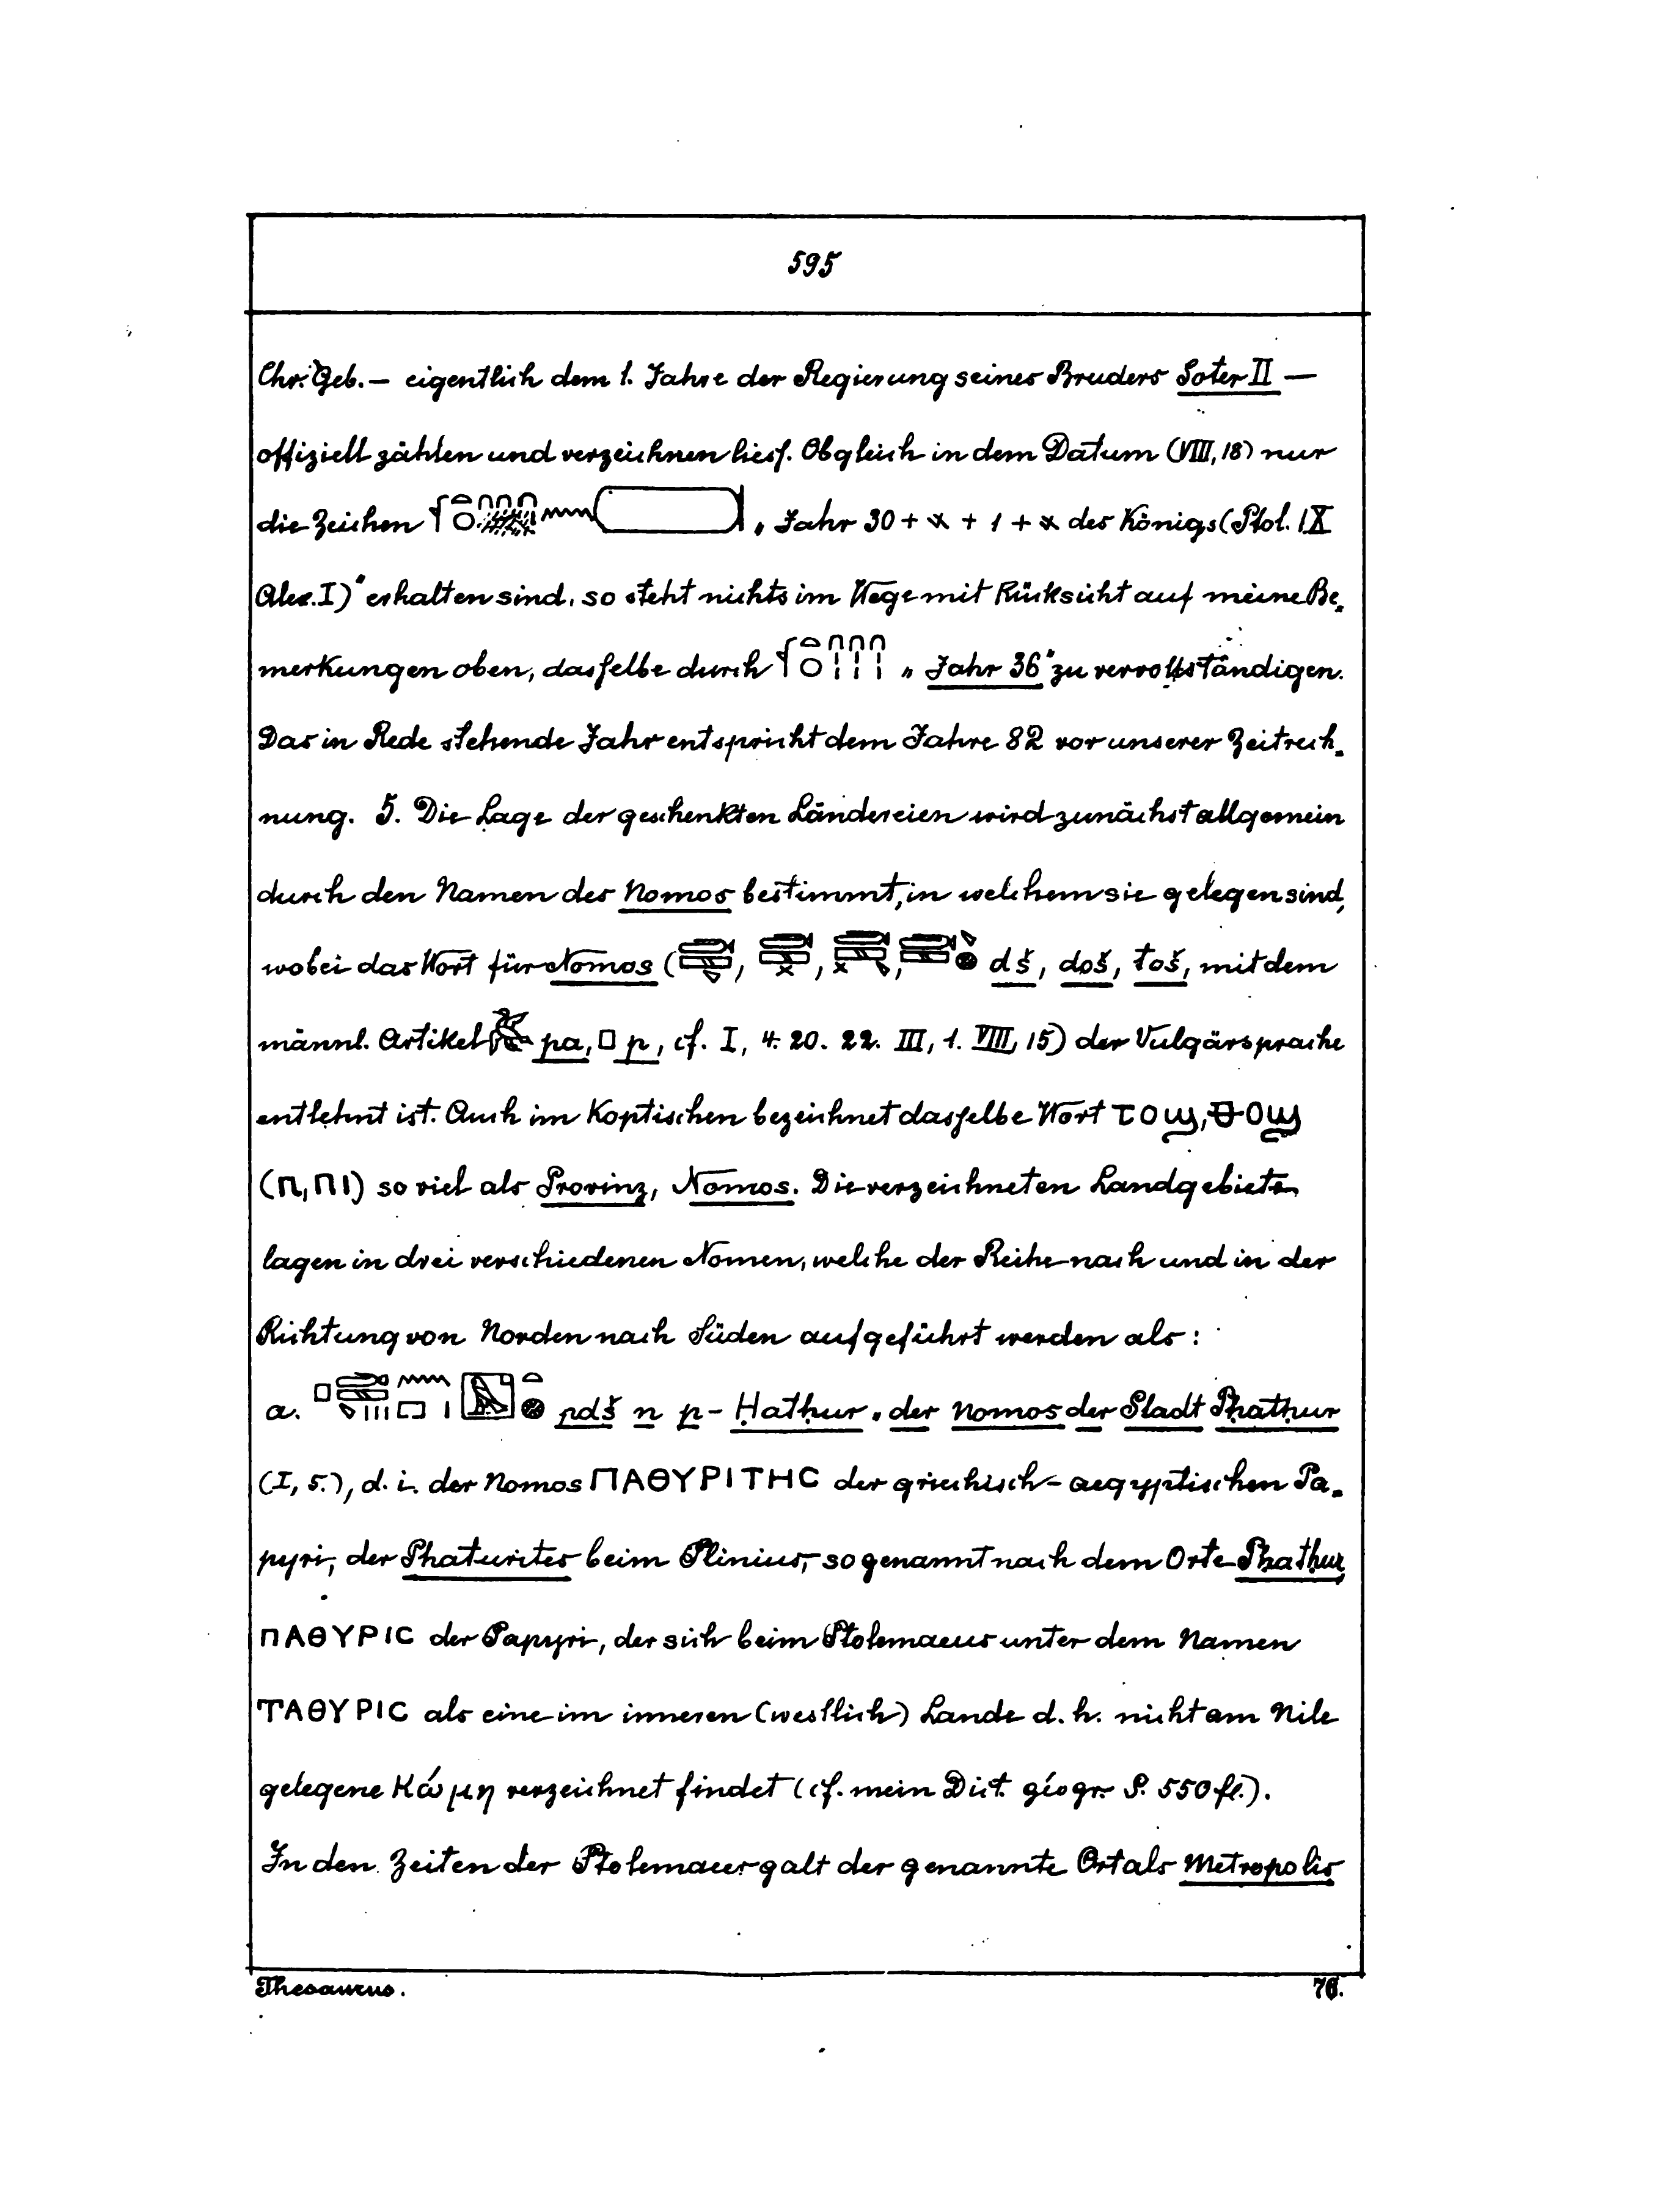 595
Chr. Geb. — eigentlich dem 1. Jahre der Regierung seines Bruders Soter II —
offiziell zählen und verzeichnen liess. Obgleich in dem Datum (VIII, 18) nur
die Zeichen „ Jahr 30 + x + 1 + x des Königs (Ptol. IX
Alex. I)“ erhalten sind, so steht nichts im Wege mit Rücksicht auf meine Be-
merkungen oben, dasselbe durch „ Jahr 36“ zu vervollständigen.
Das in Rede stehende Jahr entspricht dem Jahre 82 vor unserer Zeitrech-
nung. 5. Die Lage der geschenkten Ländereien wird zunächst allgemein
durch den Namen des Nomos bestimmt, in welchem sie gelegen sind,
wobei das Wort für Nomos ( , , , dš, doš, toš, mit dem
männl. Artikel pa, p, cf. I, 4. 20. 22. III, 1. VIII, 15) der Vulgärsprache
entlehnt ist. Auch im Koptischen bezeichnet dasselbe Wort ⲧⲟϣ, ⲑⲟϣ
(ⲡ, ⲡⲓ) so viel als Provinz, Nomos. Die verzeichneten Landgebiete
lagen in drei verschiedenen Nomen, welche der Reihe nach und in der
Richtung von Norden nach Süden aufgeführt werden als:
a. pdš n p-Hatḥur „ der Nomos der Stadt Phatḥur
(I, 5.), d. i. der Nomos ΠΑΘΥΡΙΤΗC der griechisch-aegyptischen Pa-
pyri, der Phaturites beim Plinius, so genannt nach dem Orte Phatḥur,
ΠΑΘΥΡΙC der Papyri, der sich beim Ptolemaeus unter dem Namen
ΤΑΘΥΡΙC als eine im inneren (westlich) Lande d. h. nicht am Nile
gelegene Κώμη verzeichnet findet (cf. mein Dict. géogr. S. 550 fl.).
In den Zeiten der Ptolemaeer galt der genannte Ort als Metropolis
Thesaurus.
76.